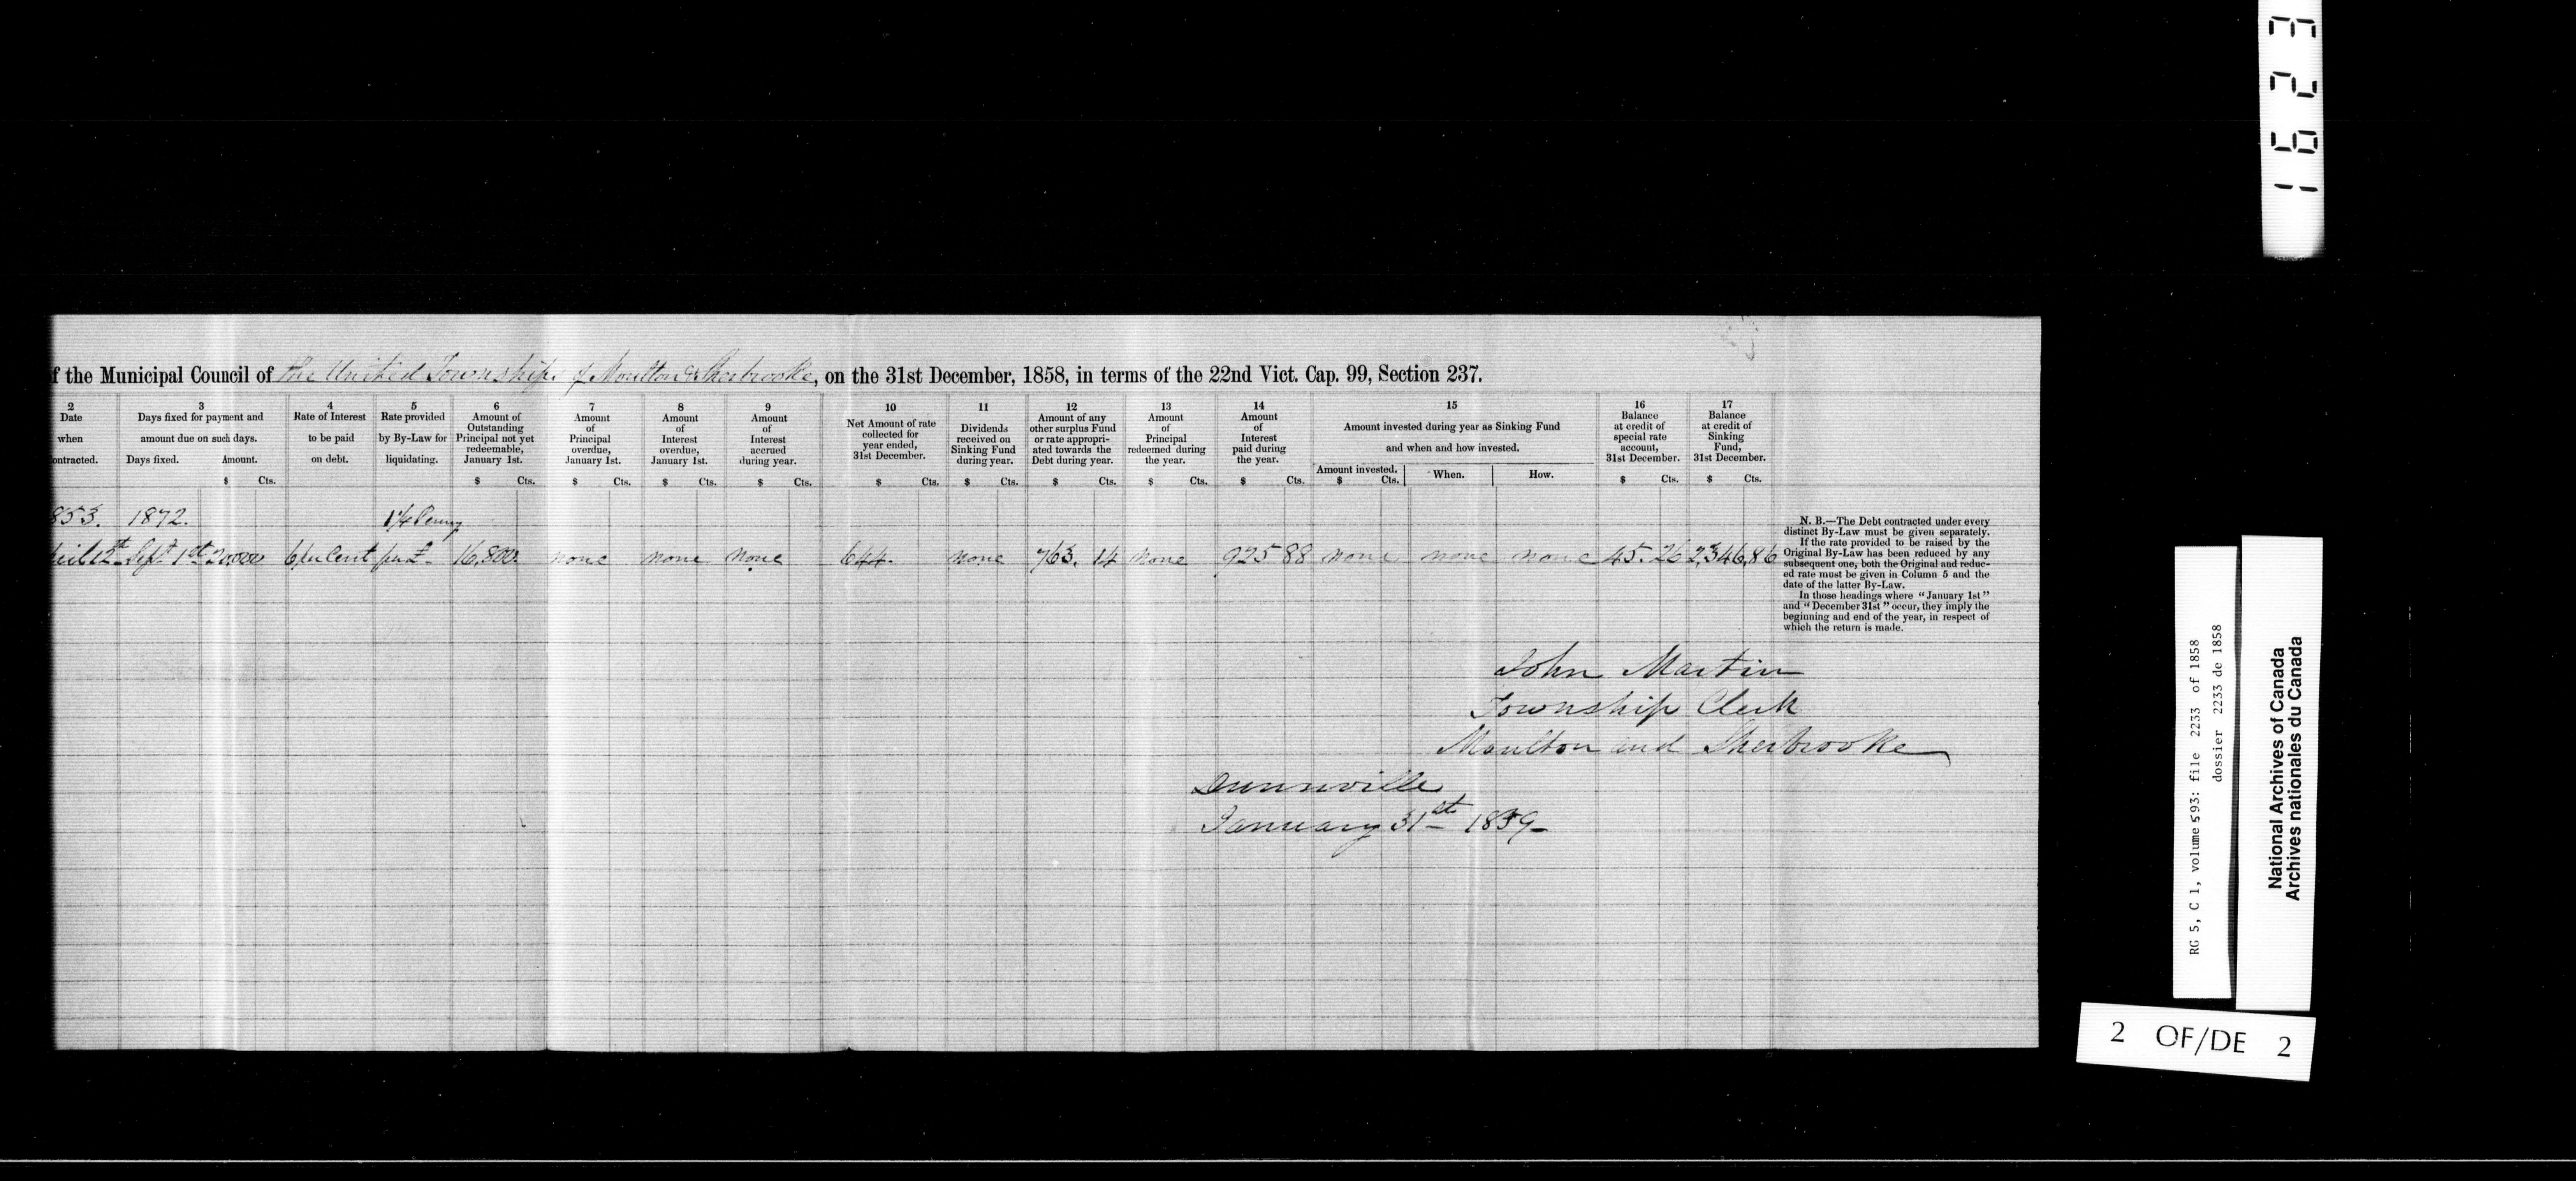 1623
f the Municipal Council of the United Townships of Moulton & Sherbrooke, on the 31st December, 1858, in terms of the 22nd Vict. Cap. 99, Section 237.
2
Date
when
ontracted.
3
Days fixed for payment and
amount due on such days.
Days fixed. Amount.
$ Cts.
4
Rate of Interest
to be paid
on debt.
5
Rate provided
by By-Law for
liquidating.
6
Amount of
Outstanding
Principal not yet
redeemable,
January 1st.
$ Cts.
7
Amount
of
Principal
overdue,
January 1st.
$ Cts.
8
Amount
of
Interest
overdue,
January 1st.
$ Cts.
9
Amount
of
Interest
accrued
during year.
$ Cts.
10
Net Amount of rate
collected for
year ended,
31st December.
$ Cts.
11
Dividends
received on
Sinking Fund
during year.
$ Cts.
12
Amount of any
other surplus Fund
or rate appropri-
ated towards the
Debt during year.
$ Cts.
13
Amount
of
Principal
redeemed during
the year.
$ Cts.
14
Amount
of
Interest
paid during
the year.
$ Cts.
15
Amount invested during year as Sinking Fund
and when and how invested.
Amount invested. When. How.
$ Cts.
16
Balance
at credit of
special rate
account,
31st December.
$ Cts.
17
Balance
at credit of
Sinking
Fund,
31st December.
$ Cts.
853. 1872. 1¼ Penny
12th Sept 1st 20,000 6 per Cent per £ 16,800 none none none 644. none 763. 14 none 925 88 none none none 45. 26 2,346,86
N. B.—The Debt contracted under every
distinct By-Law must be given separately.
If the rate provided to be raised by the
Original By-Law has been reduced by any
subsequent one, both the Original and reduc-
ed rate must be given in Column 5 and the
date of the latter By-Law.
In those headings where "January 1st"
and "December 31st" occur, they imply the
beginning and end of the year, in respect of
which the return is made.
John Martin
Township Clerk
Moulton and Sherbrooke
Dunnville
January 31st 1859
RG 5, C 1, volume 593: file 2233 of 1858
dossier 2233 de 1858
National Archives of Canada
Archives nationales du Canada
2 OF/DE 2